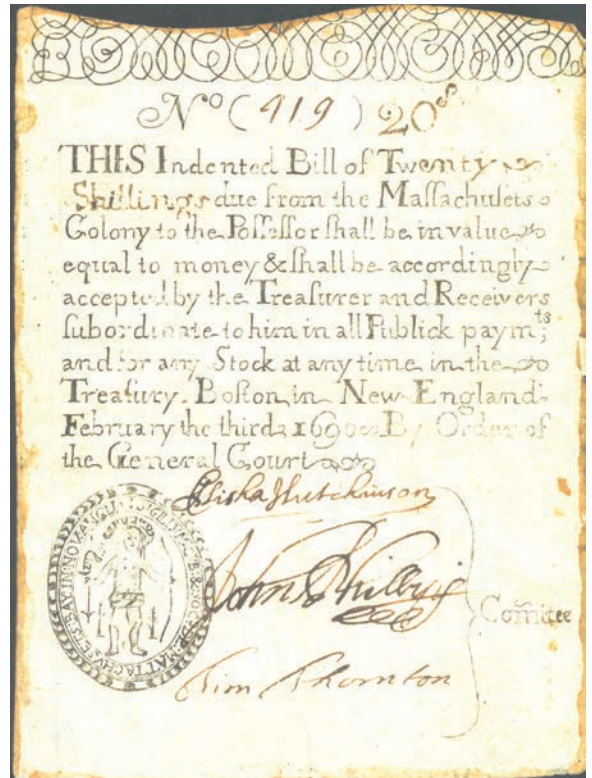 Nº (919) 20ˢ
THIS Indented Bill of Twenty
Shillings due from the Maſſachuſets
Colony to the Poſſeſſor ſhall be in value
equal to money & ſhall be accordingly
accepted by the Treaſurer and Receivers
ſubordinate to him in all Publick paymᵗˢ;
and for any Stock at any time in the
Treaſury. Boſton in New-England
February the third 1690. By Order of
the General Court
Elisha Hutchinson
John Phillips
Comitee
Tim Thornton